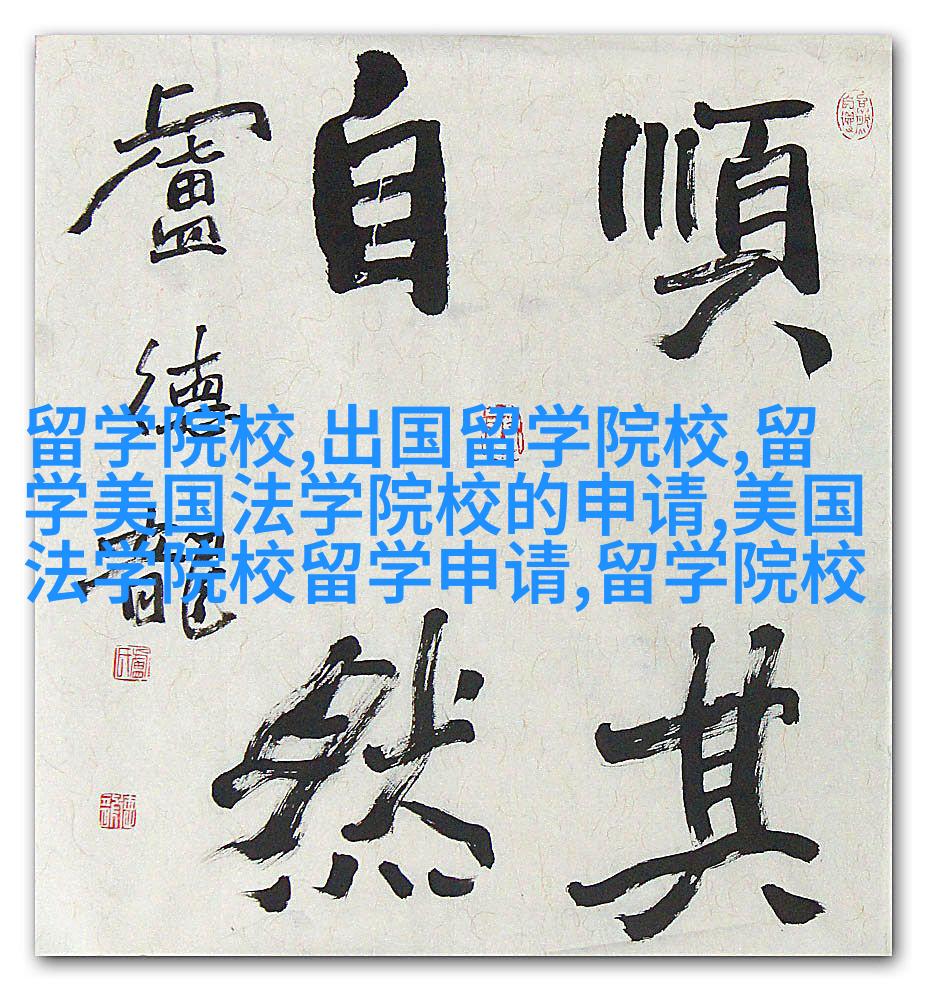 順其
自然
盧德龍
留学院校,出国留学院校,留
学美国法学院校的申请,美国
法学院校留学申请,留学院校